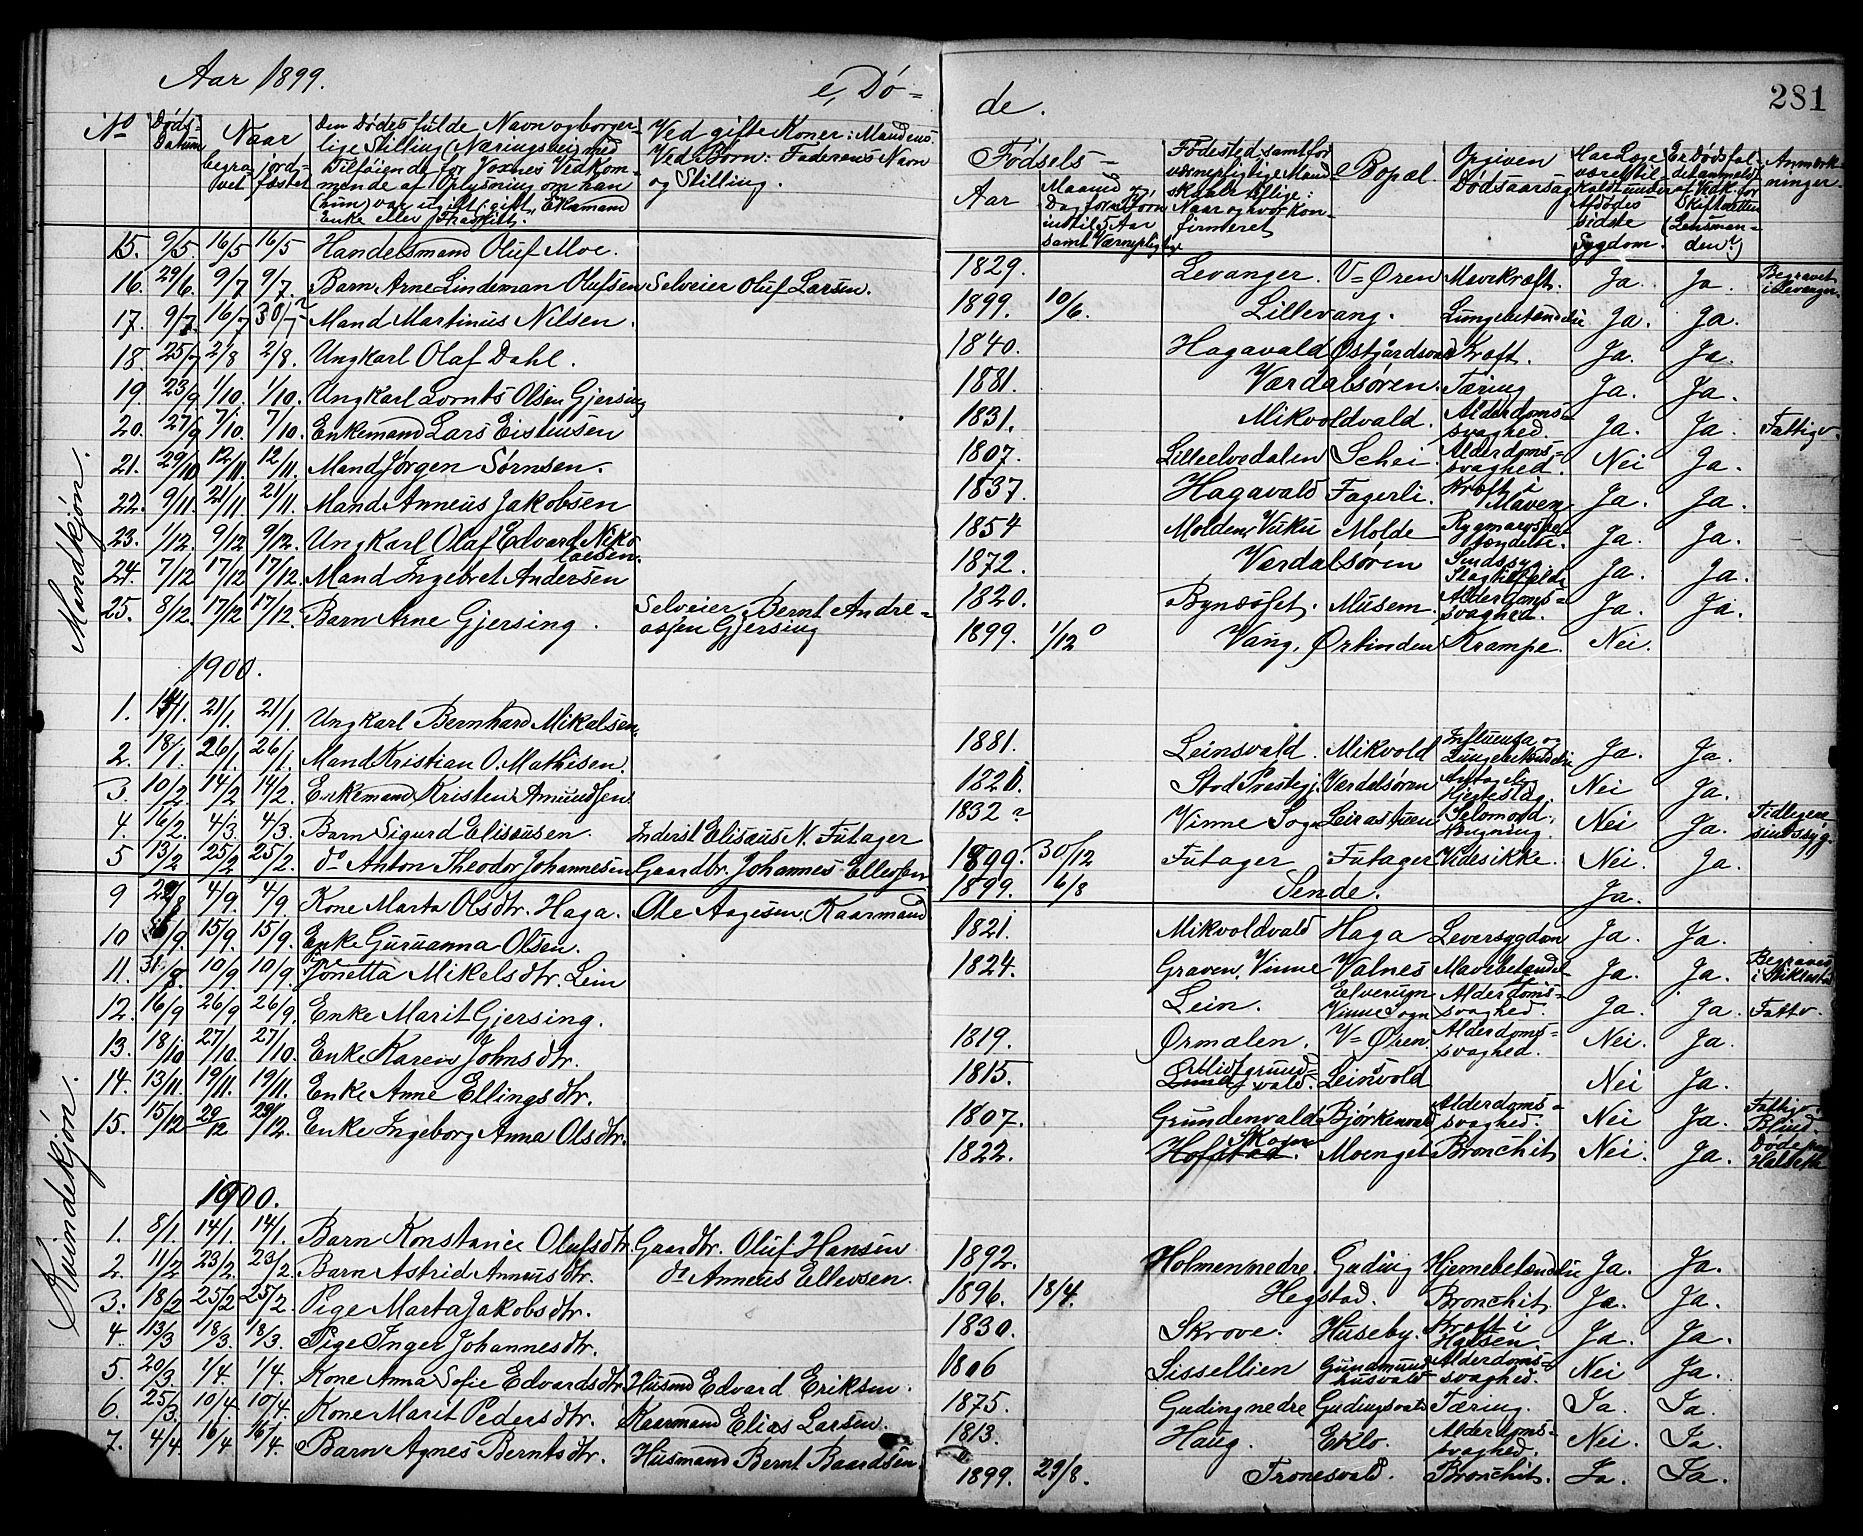 Aar 1899.
e, Dø-
de.
281
No
Døds-
Datum
Naar
begra-
vet
jord-
fæstet
Den Dødes fulde Navn og borger-
lige Stilling (Næringsvei) med
Tilføiende for Voxnes Vedkom-
mende af Oplysning om han
(hun) var ugift, gift, Enkemand
Enke eller Fraskilt.
Ved gifte Koner: Mandens
Ved Børn: Faderens Navn
og Stilling.
Fødsels-
Aar
Maaned og
Dag for Børn
indtil 5 Aar
samt Værnepligtige
Fødested, samt for
værnepligtige Mand-
skaber tillige:
Naar og hvor kon-
firmeret
Bopæl.
Opgiven
Dødsaarsag
Har Læge
været til-
kaldt under
Afdødes
sidste
Sygdom.
Er Dødsfal-
det anmeldt
af Vedk. for
Skifteretten
(Lensman-
den?)
Anmærk-
ninger.
Mandkjøn.
15. 9/5. 16/5 16/5 Handelsmand Oluf Moe. 1829. Levanger. V-Øren Mavekræft. Ja. Ja. Begravet i Levanger.
16. 29/6. 9/7 9/7. Barn Arne Lindeman Olufsen Selveier Oluf Larsen. 1899. 10/6. Lillevang. Lungebetændelse Ja. Ja.
17. 9/7. 16/7 30/7? Mand Martinus Nilsen. 1840. Hagavald Østgårdsvald Kræft. Ja. Ja.
18. 25/7 2/8 2/8. Ungkarl Olaf Dahl. 1881. Værdalsøren. Tæring Ja. Ja.
19 23/9 1/10. 1/10. Ungkarl Lornts Olsen Gjersing 1831. Mikvoldvald. Alderdoms-svaghed. Ja. Ja. Fattigv.
20. 27/9 7/10. 7/10. Enkemand Lars Eistensen 1807. Lilleelvedalen Schei. Alderdoms-svaghed. Nei Ja.
21. 29/10 12/11. 12/11. Mand Jørgen Sørnsen. 1837. Hagavald Fagerli. Kræft i Maven Ja. Ja.
22. 9/11 21/11 21/11. Mand Anneus Jakobsen 1854 Molden, Vuku Molde Rygmarvsbetændelse. Ja. Ja.
23. 1/12. 9/12 9/12. Ungkarl Olaf Edvard Nikolaisen. 1872. Værdalsøren Sindssyg. Slagtilfælde Ja. Ja.
24. 7/12 17/12 17/12. Mand Ingebret Andersen 1820. Bynæsset. Musem. Alderdoms-svaghed. Ja. Ja.
25. 8/12. 17/12 17/12. Barn Arne Gjersing. Selveier Bernt Andre-assen Gjersing 1899. 1/12 Vang, Ørtinden Krampe. Nei.
1900.
1. 14/1. 21/1. 21/1. Ungkarl Bernhard Mikalsen. 1881. Leinsvald. Mikvold Influensa og Lungebetændelse Ja. Ja.
2. 18/1. 26/1. 26/1. Mand Kristian O. Mathisen. Stod Prestegj. Værdalsøren Antagelig Hjerteslag. Nei Ja.
3. 10/2. 14/2 14/2. Enkemand Kristen Amundsen 1832? Vinne Sogn Selvmord, Hengning. Nei Ja. Tidligere sindssyg.
4. 16/2. 4/3. 4/3. Barn Sigurd Elisæusen. Inderst Elisæus N. Futager 1899. 30/12 Futager Futager Vides ikke. Nei. Ja.
5 13/2 25/2 25/2. do Anton Theodor Johannesen Gaardbr. Johannes Ellevsen 1899. 16/8 Sende. Ja.
Kvindekjøn.
9 4/9. 4/9 Kone Marta Olsdtr. Haga. Ole Aagesen, Kaarmand 1821. Mikvoldvald Haga Leversygdom Ja. Ja.
10 15/9. 15/9. Enke Guruanna Olsen. 1824. Graven, Vinne Valnes Mavebetændel- Ja. Ja. Begravet i Stiklestad
11. 31/8. 10/9. 10/9. Jonetta Mikelsdtr. Lein Lein. Vinne Sogn Alderdoms-svaghed. Ja. Ja. Fattv.
12. 16/9 26/9 26/9. Enke Marit Gjersing. 1819. Ørmælen. V-Øren. Alderdoms-svaghed. Nei. Ja.
13. 18/10 27/10. 27/10. Enke Karen Johnsdtr. 1815. Leinsvold Nei Ja.
14. 13/11. 19/11. 19/11. Enke Anne Ellingsdtr. 1807. Grundenvald Bjørkenvald Alderdoms-svaghed. Nei Ja. Fattigv. Blind.
15. 15/12 29/12 29/12. Enke Ingeborg Anna Olsdtr. 1822. Hofstad. Skogn Moenget Bronchit Nei. Ja. Døde paa
1900.
1. 8/1. 14/1. 14/1. Barn Konstance Olufsdtr. Gaardbr. Oluf Hansen 1892. Holmen nedre. Guding Hjernebetændelse Ja. Ja.
2. 11/2 23/2. 23/2. Barn Astrid Anneusdtr. do Anneus Ellevsen. 1896. 18/4. Hegstad. Bronchit. Ja. Ja.
3. 18/2 25/2 25/2. Pige Marta Jakobsdtr. 1830. Skrove. Huseby. Kræft i Halsen Ja. Ja.
4. 13/3 18/3. 18/3. Pige Inger Johannesdtr. 1806 Sissellien Gundmundhusvald Alderdoms-svaghed. Nei Ja.
5. 20/3. 1/4. 1/4. Kone Anna Sofie Edvardsdtr. Husmd Edvard Eriksen. 1875. Guding nedre Gudingsvald Tæring. Ja. Ja.
6. 25/3. 10/4. 10/4. Kone Marit Pedersdtr. Kaarmand Elias Larsen. 1813. Haug. Eklo. Alderdoms-svaghed. Nei. Ja.
7. 4/4 16/4 16/4. Barn Agnes Berntsdtr. Husmand Bernt Baardsen 1899. 29/8. Tronesvald. Bronchit. Ja. Ja.